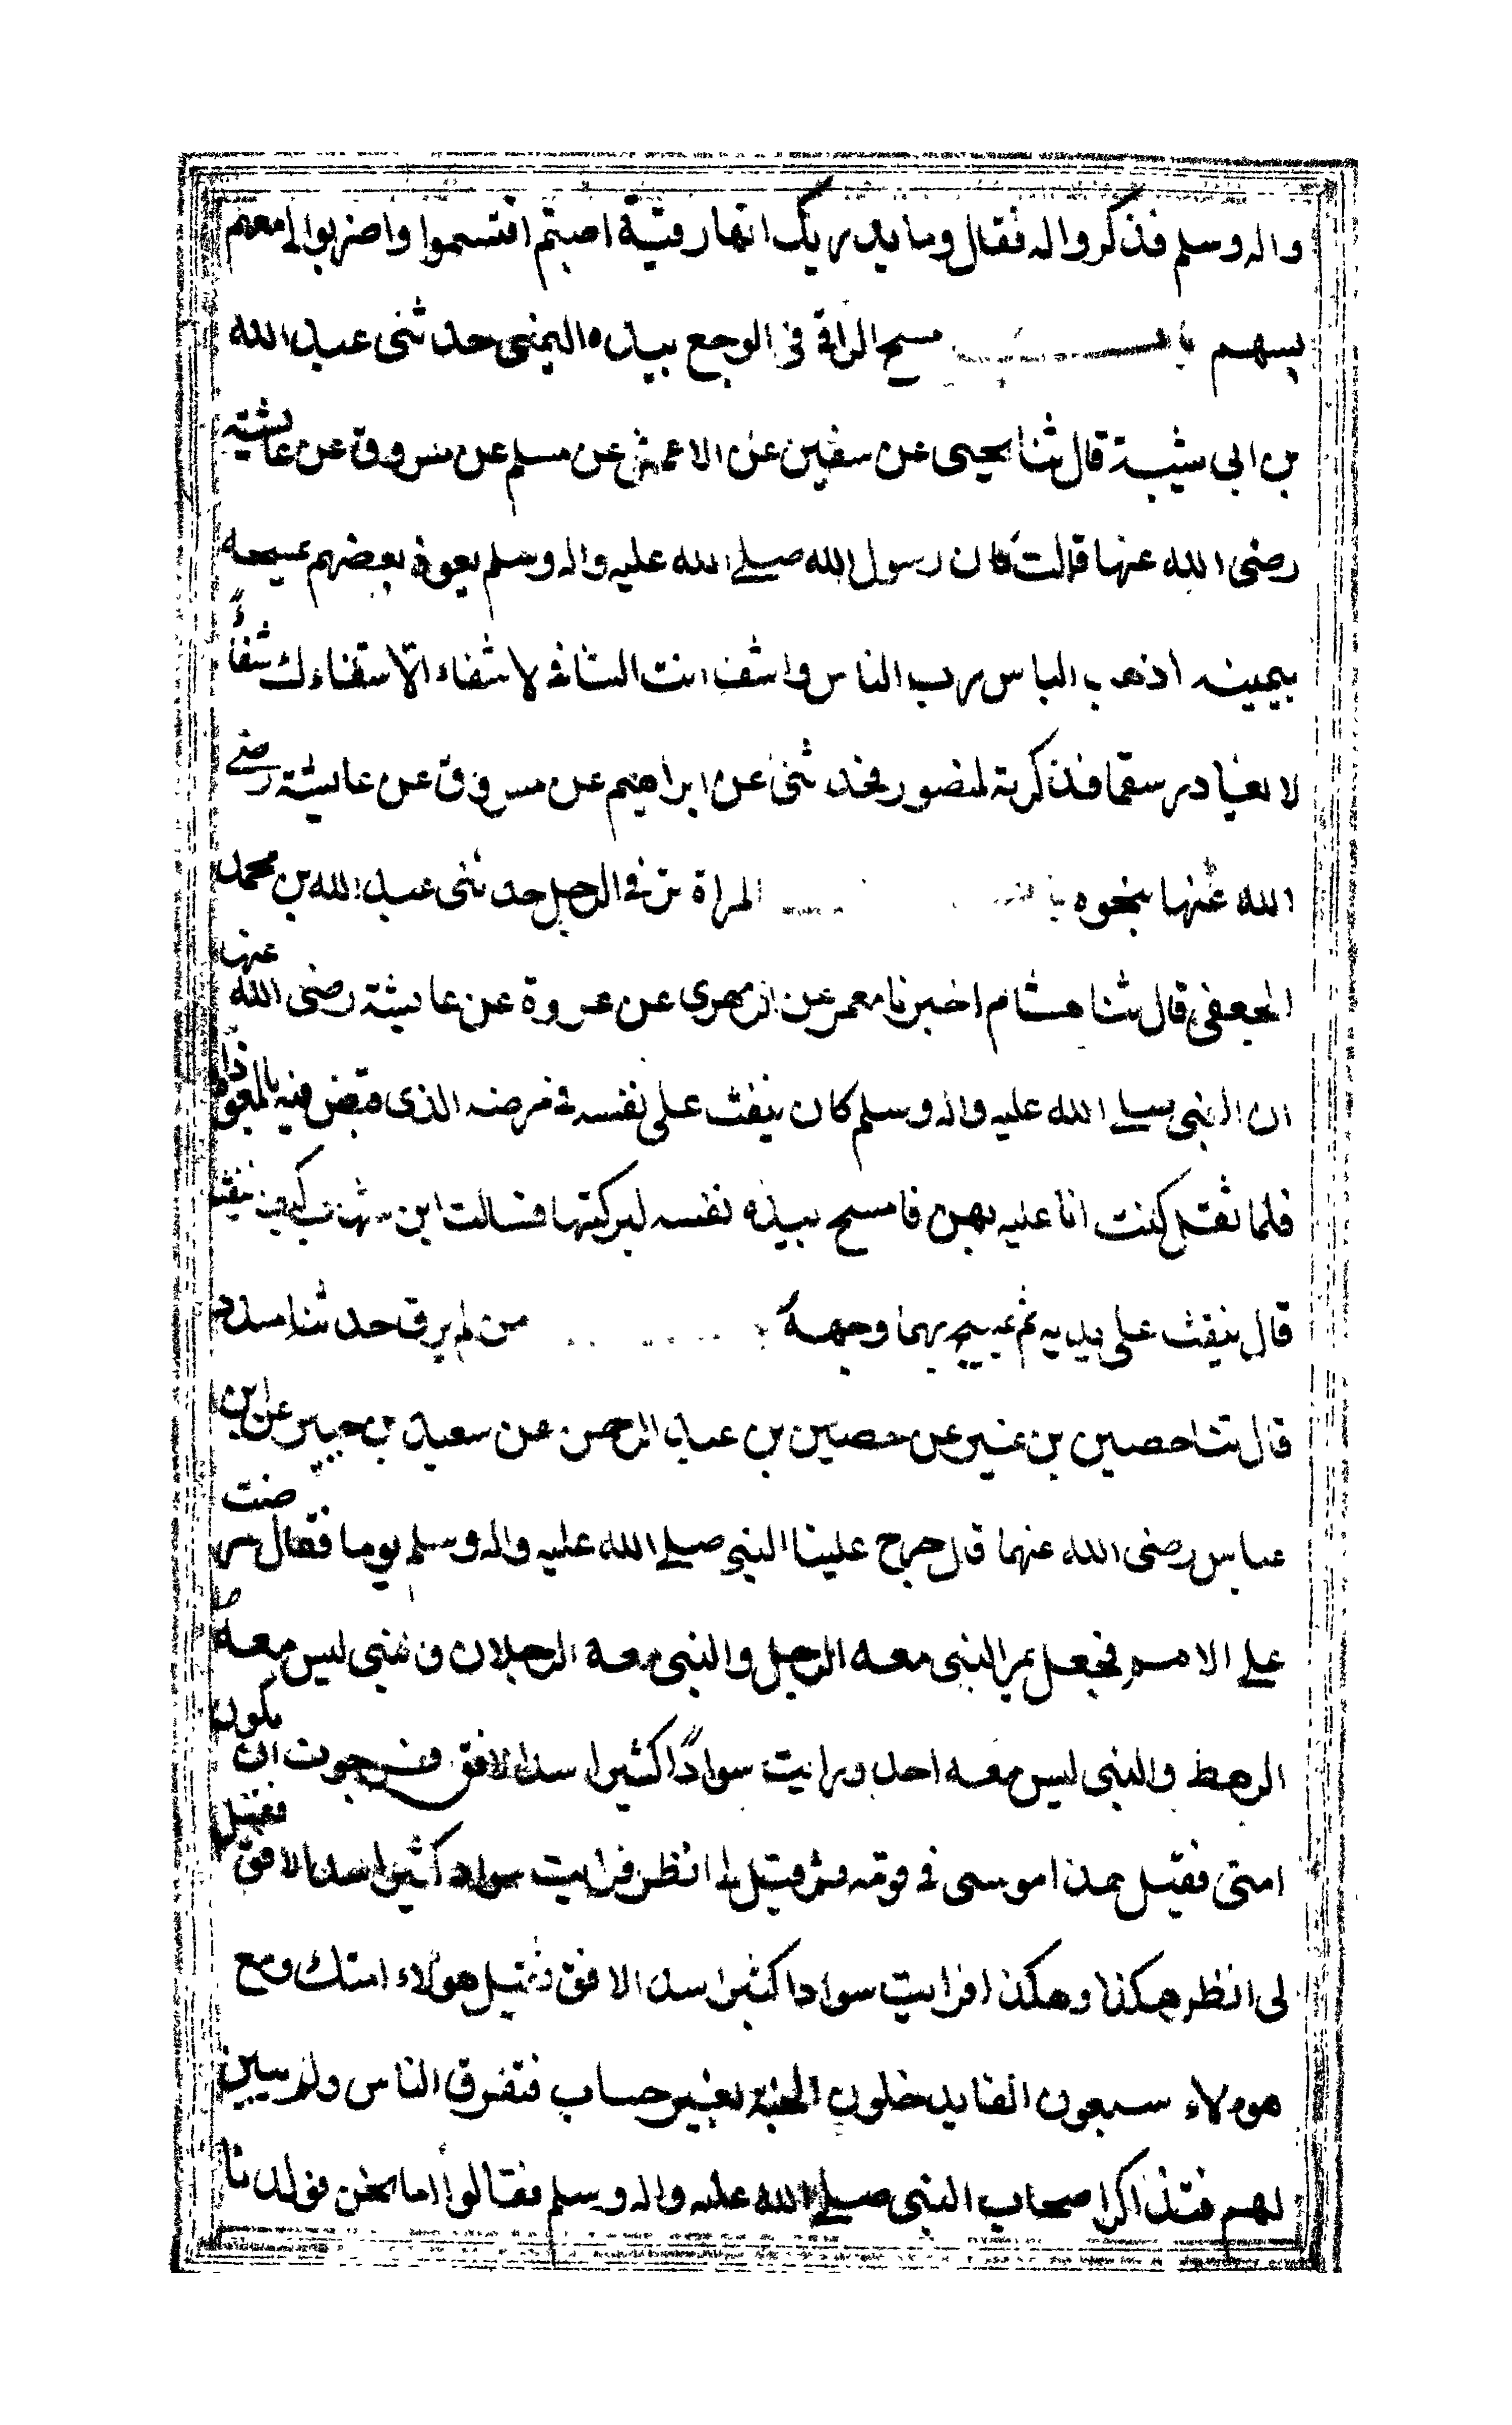 واله وسلم فذكروا له فقال وما يدريك انها رقية اصبتم اقتسموا واضربوا لي معهم
بسهم باب مسح الراقي في الوجع بيده اليمنى حدثنى عبد الله
بن ابي شيبة قال ثنا يحيى عن سفين عن الاعمش عن مسلم عن مسروق عن عايشة
رضى الله عنها قالت كان رسول الله صلے الله عليه واله وسلم يعوذ بعضهم يمسحه
بيمينه اذهب الباس رب الناس واشف انت الشافي لا شفاء الا شفاءك شفاءً
لا يغادر سقما فذكرته لمنصور فحدثنى عن ابراهيم عن مسروق عن عايشة رضے
الله عنها بنحوه باب المراة ترقي الرجل حدثنى عبد الله بن محمد
الجعفى قال ثنا هشام اخبرنا معمر عن الزهرى عن عروة عن عايشة رضى الله عنها
ان النبى صلے الله عليه واله وسلم كان ينفث على نفسه في مرضه الذى قبض فيه بالمعوذات
فلما ثقل كنت انا عليه بهن فامسح بيده نفسه لبركتها فسالت ابن شهاب كيف ينفث
قال ينفث على يديه ثم يمسح بهما وجهه من لم يرق حدثنا مسدد
قال ثنا حصين بن نمير عن حصين بن عبد الرحمن عن سعيد بن جبير عن ابن
عباس رضى الله عنهما قال خرج علينا النبي صلے الله عليه واله وسلم يوما فقال عرضت
علے الامم فجعل يمر النبى معه الرجل والنبى معه الرجلان والنبى ليس معه
الرهط والنبى ليس معه احد ورايت سوادًا كثيرا سد الافق فرجوت ان يكون
امتى فقيل هذا موسى في قومه ثم قيل لي انظر فرايت سوادا كثيرا سد الافق فقيل
لى انظر هكذا وهكذا فرايت سوادا كثيرا سد الافق فقيل هولاء امتك ومع
هولاء سبعون الفا يدخلون الجنة بغير حساب فتفرق الناس ولم يبين
لهم فتذاكر اصحاب النبى صلے الله عليه واله وسلم فقالوا اما نحن فولدنا